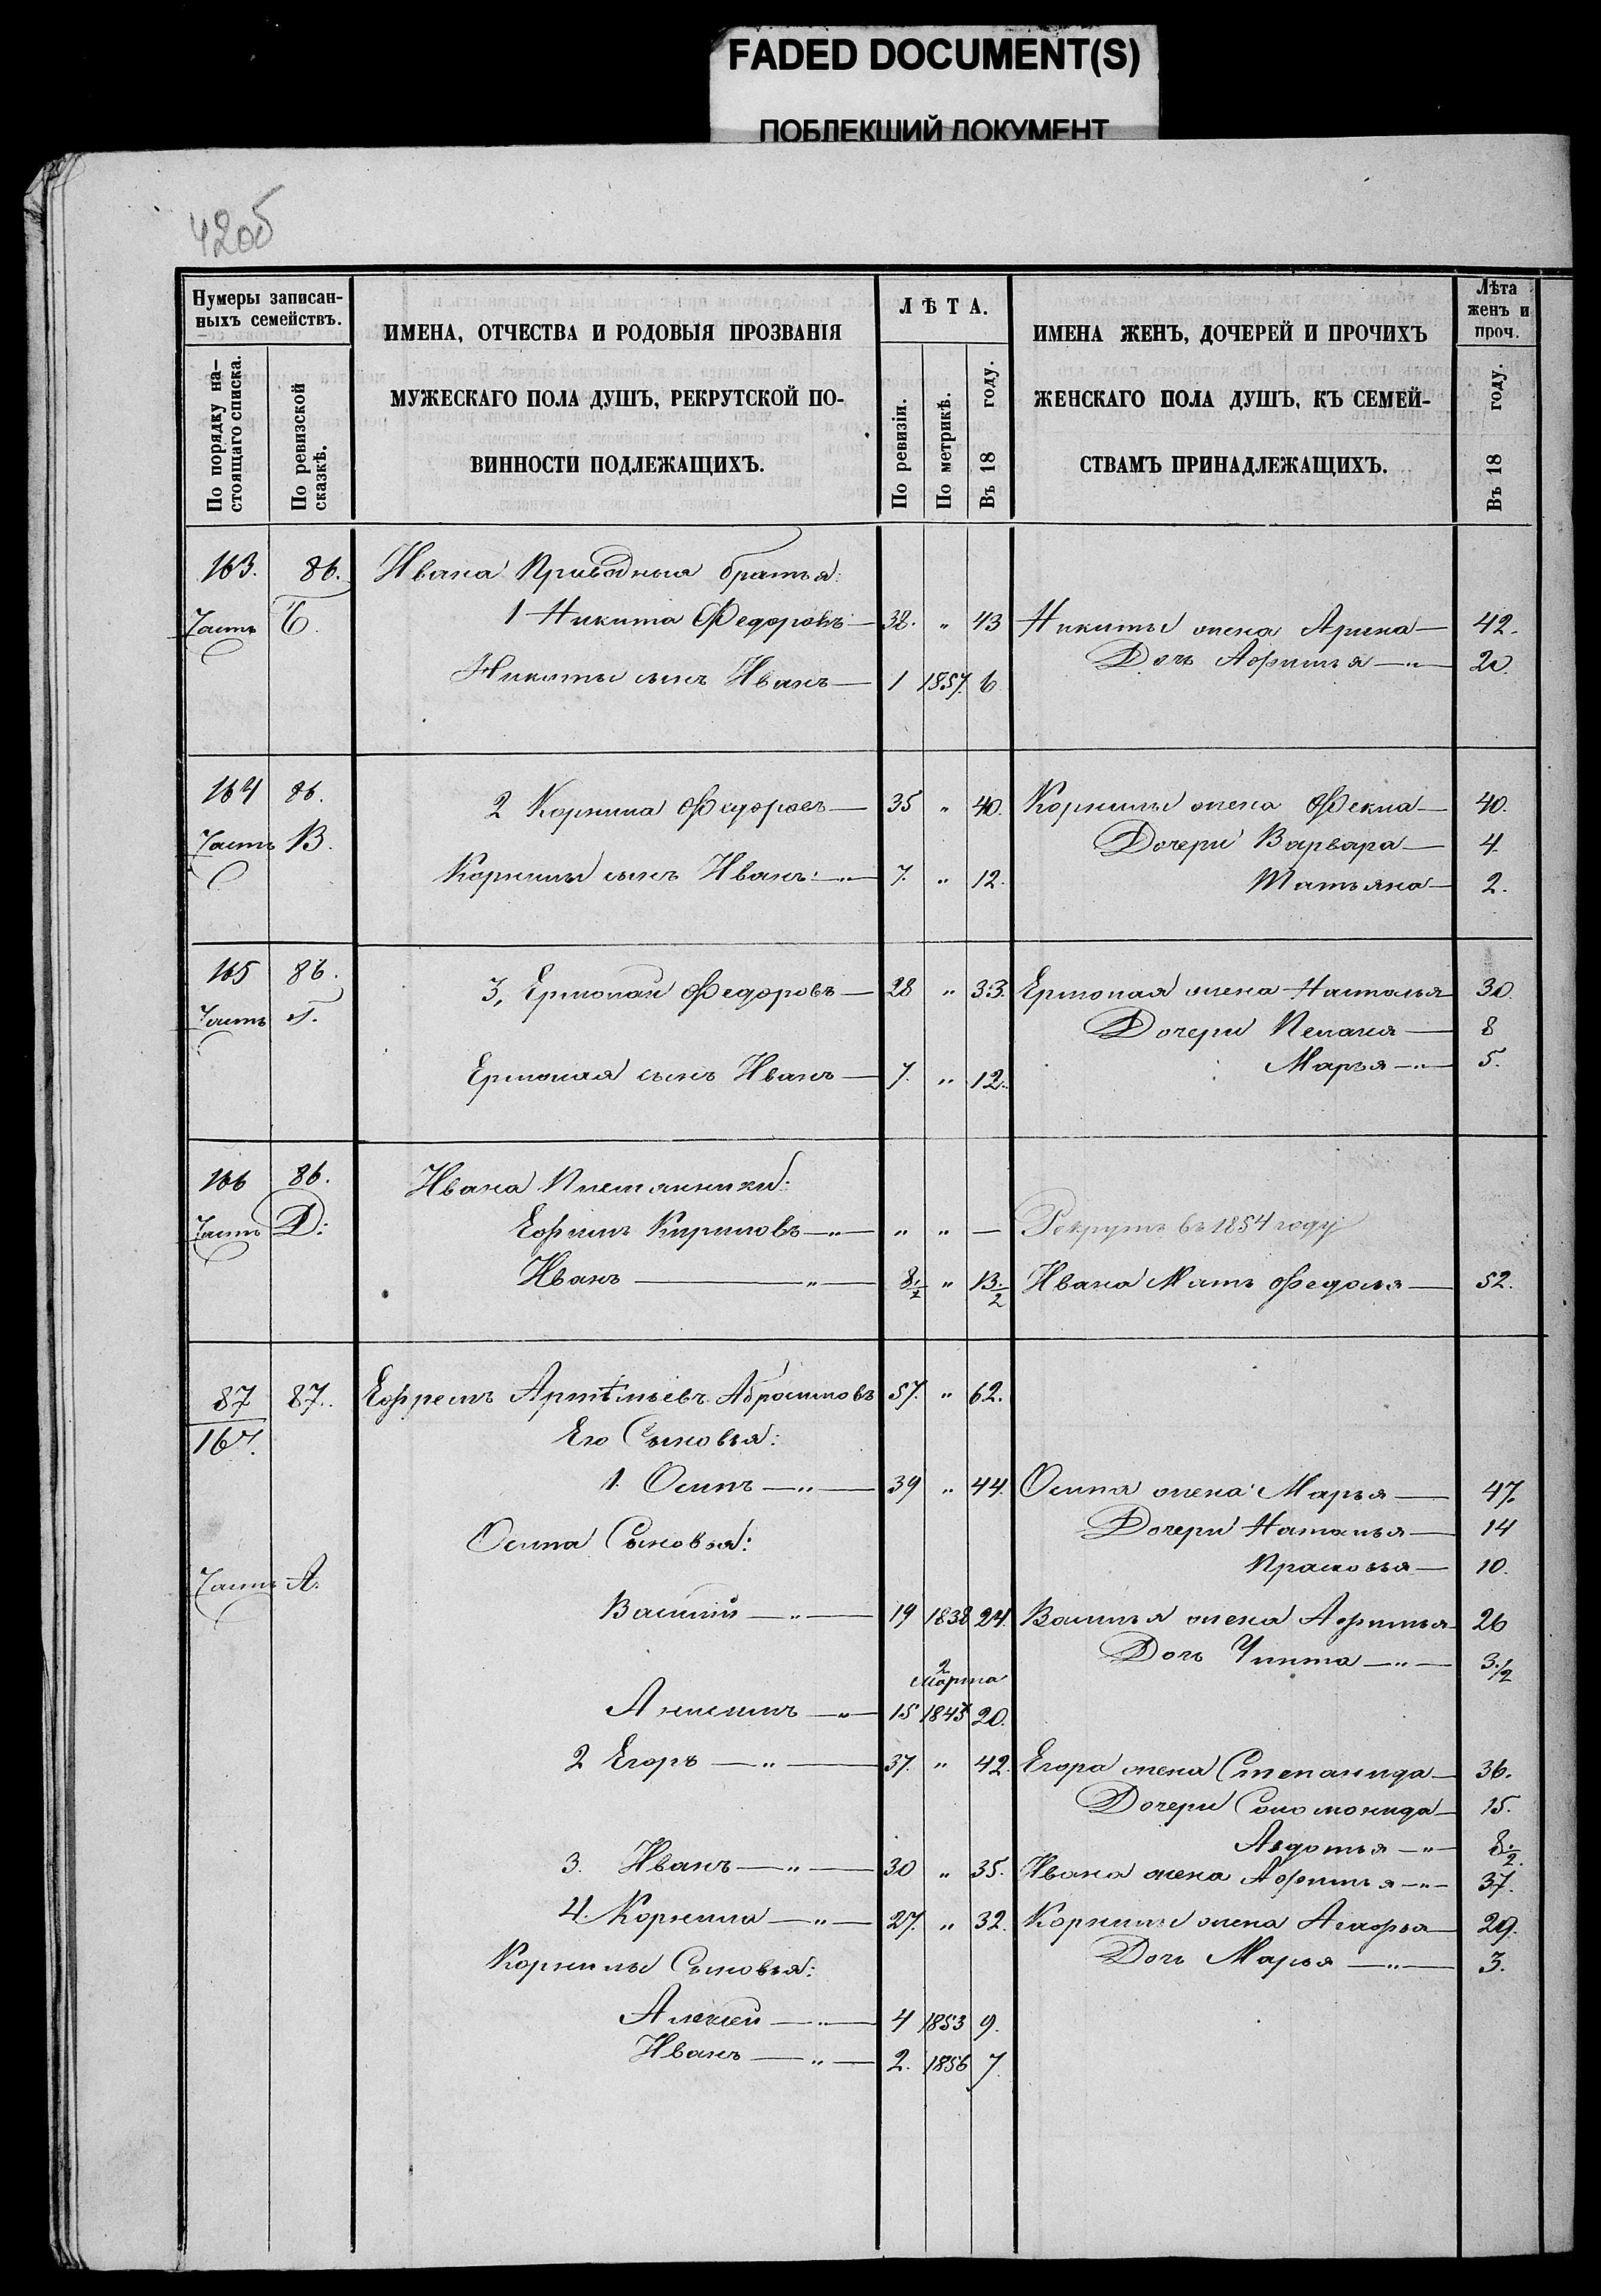 FADED DOCUMENT(S)
ПОБЛЕКШИЙ ДОКУМЕНТ
42об
Нумеры записан-
ныхъ семействъ.
По порядку на-
стоящаго списка.
По ревизской
сказкѣ.
ИМЕНА, ОТЧЕСТВА И РОДОВЫЯ ПРОЗВАНІЯ
МУЖЕСКАГО ПОЛА ДУШЪ, РЕКРУТСКОЙ ПО-
ВИННОСТИ ПОДЛЕЖАЩИХЪ.
ЛѢТА.
По ревизіи.
По метрикѣ.
Въ 18 году.
ИМЕНА ЖЕНЪ, ДОЧЕРЕЙ И ПРОЧИХЪ
ЖЕНСКАГО ПОЛА ДУШЪ, КЪ СЕМЕЙ-
СТВАМЪ ПРИНАДЛЕЖАЩИХЪ.
Лѣта
женъ и
проч.
Въ 18 году.
163. 86. Ивана братья:
Часть 1 Никита Федоровъ — 38. " 43 Никиты жена Арина — 42.
Дочь Афимья —"— 20.
Никиты сынъ Иванъ — 1 1857 6
164 86. 2 Корнила Федоровъ — 35 " 40. Корнилы жена Фекла — 40.
Часть В. Дочери Варвара — 4.
Корнилы сынъ Иванъ —"— 7. " 12. Татьяна — 2.
165 86. 3, Ермолай Федоровъ — 28 " 33. Ермолая жена Наталья 30.
Часть Г. Дочери Пелагея — 8
Марья —"— 5.
Ермолая сынъ Иванъ — 7. " 12.
166 86. Ивана Племянники:
Часть Д: Ефимъ Кириловъ —"— " " — Рекрутъ въ 1854 году
Иванъ —"— 8.½ " 13.½ Ивана Мать Федосья — 52.
87 87. Ефремъ Артемьевъ Абросимовъ 57. " 62.
167. Его Сыновья:
1. Осипъ —"— 39 " 44. Осипа жена Марья — 47.
Дочери Наталья — 14
Осипа Сыновья:
Прасковья — 10.
Часть А.
Василій —"— 19 1838 24. Василья жена Афимья 26
Дочь Улита —"— 3.½
2
марта
Анисимъ —"— 15 1843 20.
2 Егоръ —"— 37. " 42. Егора жена Степанида — 36.
Дочери Соломонида — 15.
Авдотья —"— 8.½
3. Иванъ —"— 30 " 35. Ивана жена Афимья —"— 37.
4. Корнила —"— 27. " 32. Корнилы жена 29.
Корнилы Сыновья: Дочь Марья —"— 3.
Алексѣй —"— 4 1853 9.
Иванъ —"— 2. 1856 7.